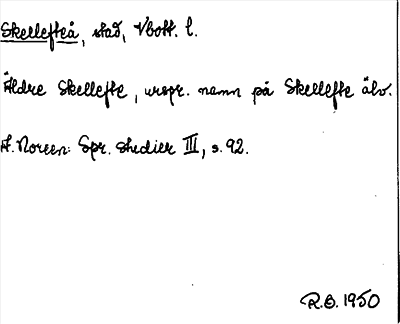 Skellefteå, stad, Vbott. l.
Äldre Skellefte, urspr. namn på Skellefte älv.
A. Noreen: Spr. studier III, s. 92.
R.O. 1950